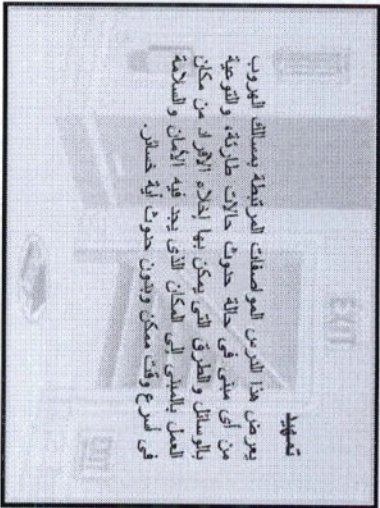 تمهيد
يعرض هذا الدرس المواصفات المرتبطة بمسالك الهروب
من أى مبنى فى حالة حدوث حالات طارئة، والتوعية
بالوسائل والطرق التى يمكن بها إخلاء الأفراد من مكان
العمل بالمبنى إلى المكان الذى يجد فيه الأمان والسلامة
فى أسرع وقت ممكن وبدون حدوث أية خسائر.
EXIT
EXIT